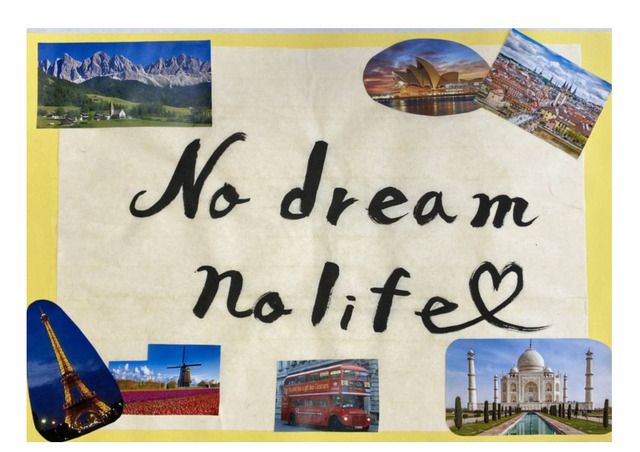 No dream
no life